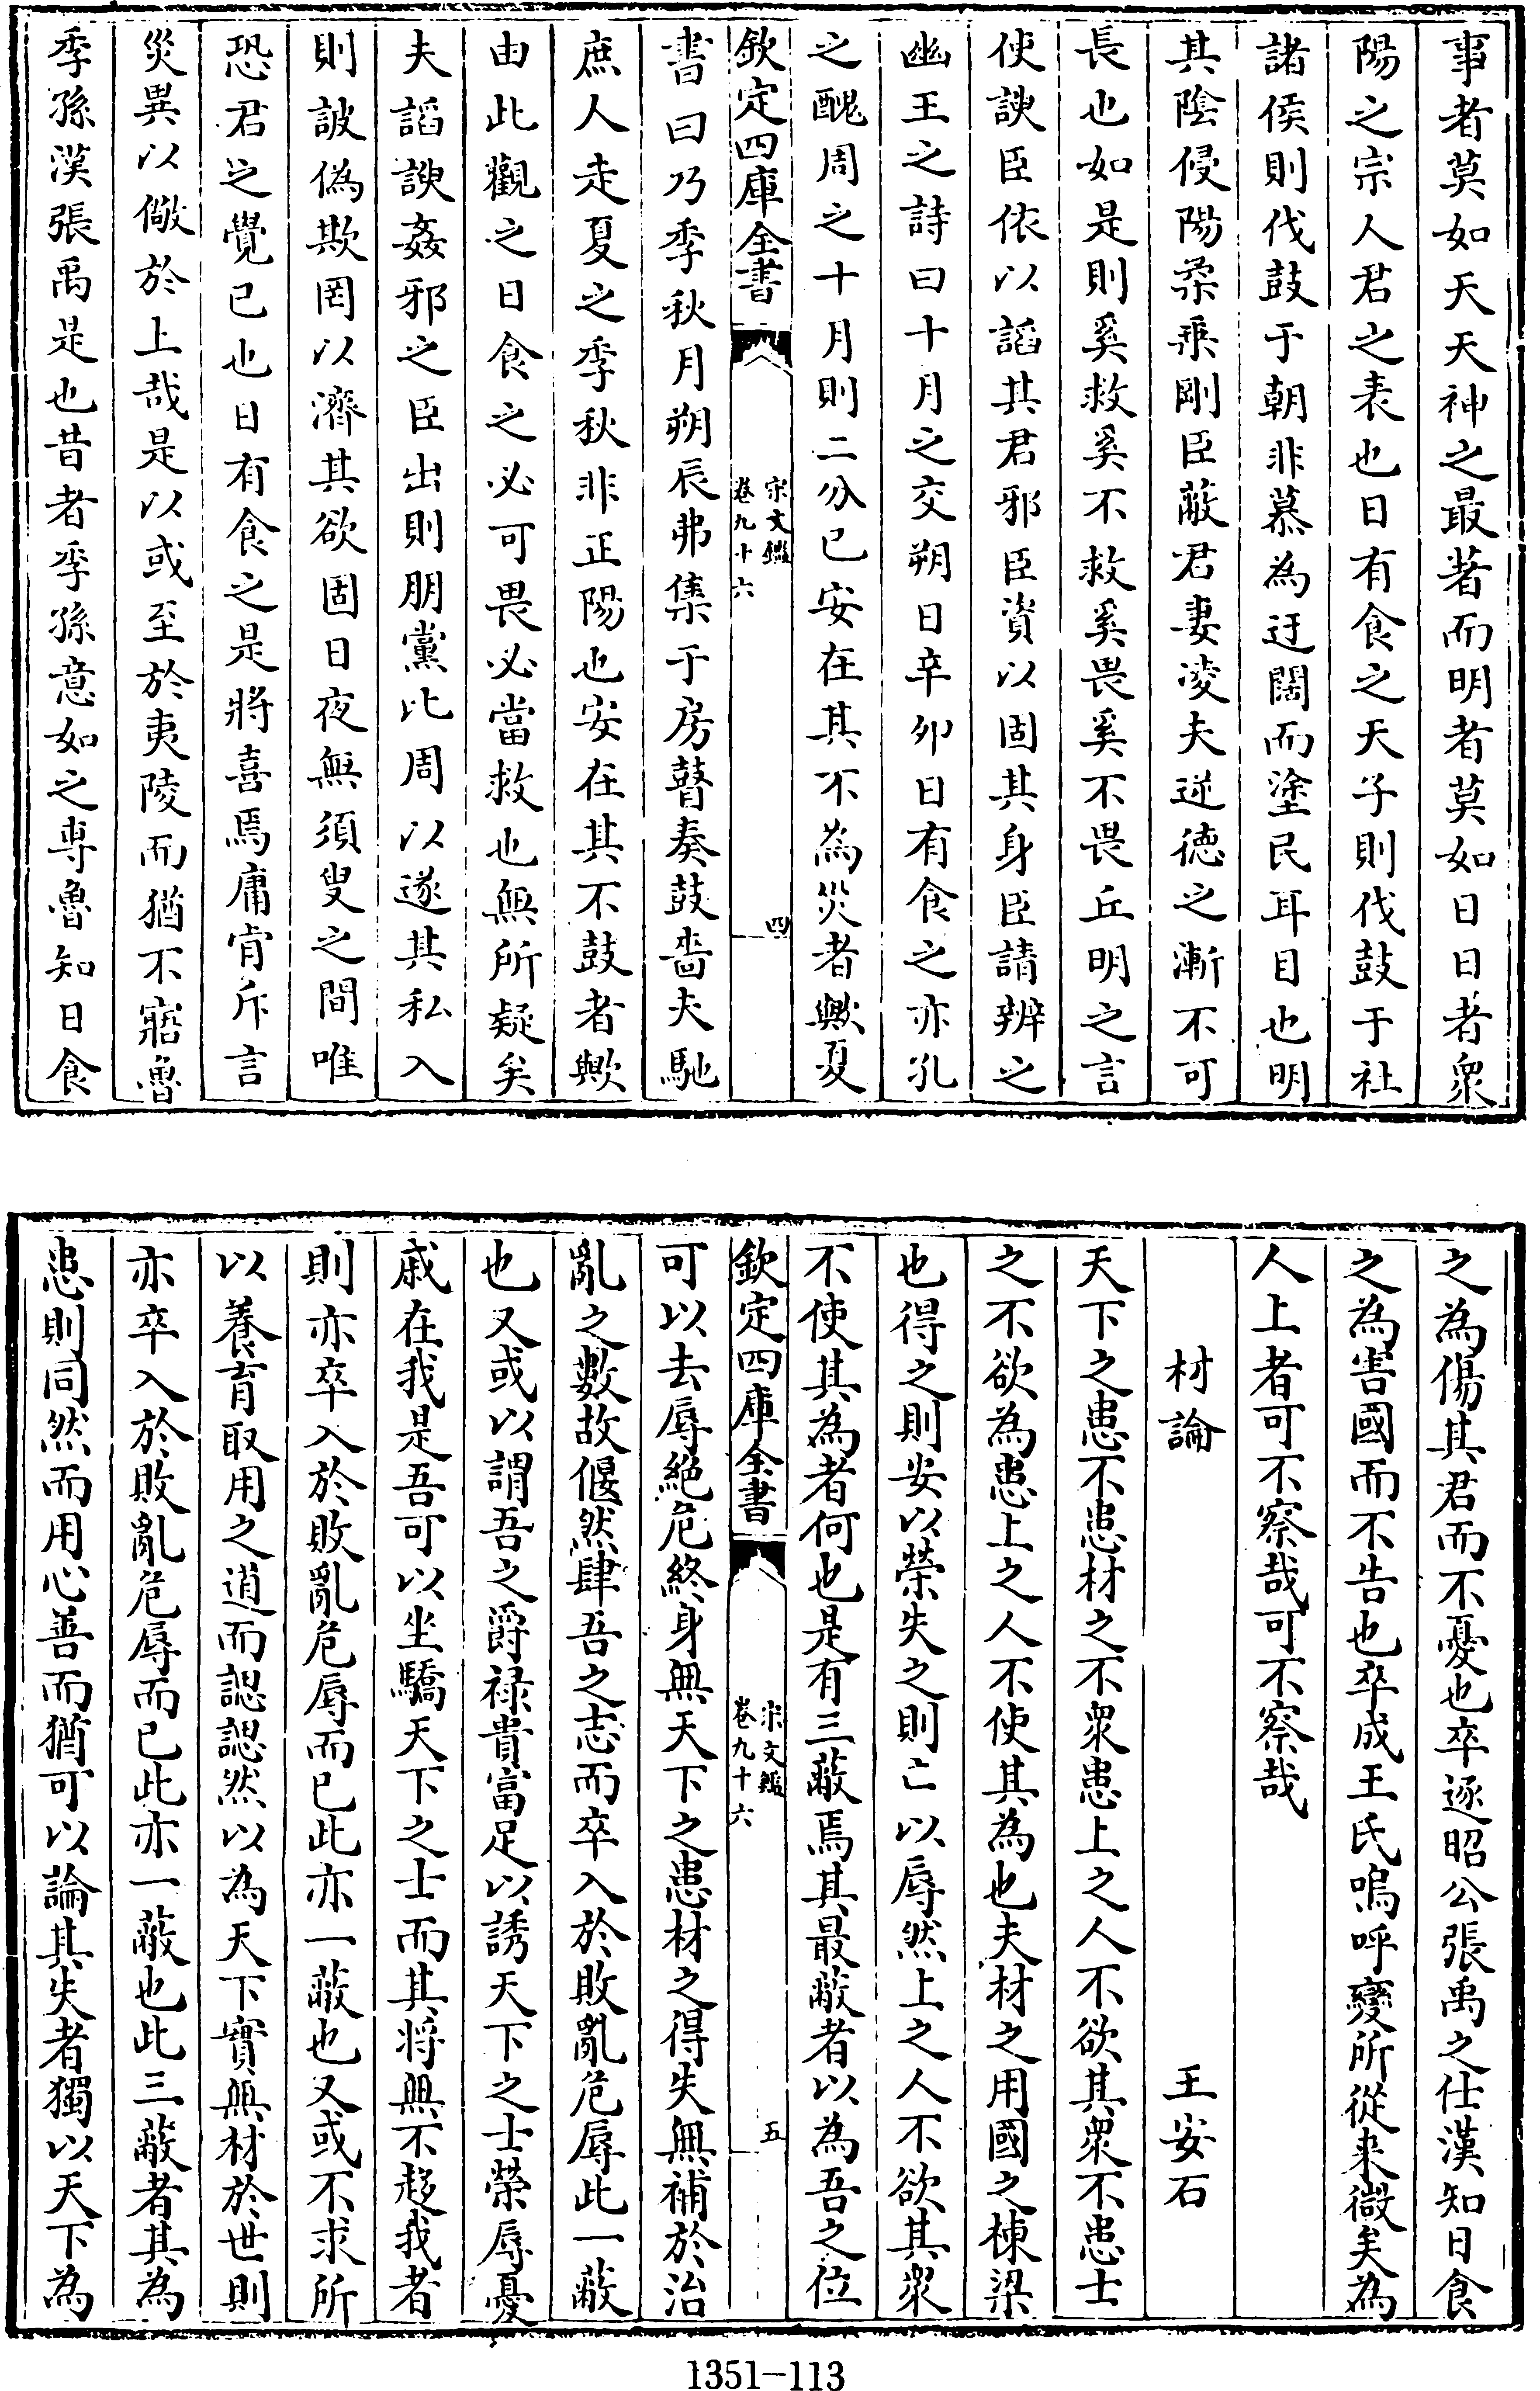 事者莫如天天神之最著而明者莫如日日者衆
陽之宗人君之表也日有食之天子則伐鼓于社
諸侯則伐鼓于朝非慕為迂闊而塗民耳目也明
其陰侵陽柔乗剛臣蔽君妻凌夫逆徳之漸不可
長也如是則奚救奚不救奚畏奚不畏丘明之言
使諛臣依以謟其君邪臣資以固其身臣請辨之
幽王之詩曰十月之交朔日辛卯日有食之亦孔
之醜周之十月則二分已安在其不為災者歟夏
欽定四庫全書
宋文鑑
卷九十六
四
書曰乃季秋月朔辰弗集于房瞽奏鼓嗇夫馳
庶人走夏之季秋非正陽也安在其不鼓者歟
由此觀之日食之必可畏必當救也無所疑矣
夫謟諛姦邪之臣出則朋黨比周以遂其私入
則詖偽欺罔以濟其欲固日夜無須臾之間唯
恐君之覺已也日有食之是將喜焉庸肯斥言
災異以儆於上哉是以或至於夷陵而猶不寤魯
季孫漢張禹是也昔者季孫意如之專魯知日食
之為傷其君而不憂也卒逐昭公張禹之仕漢知日食
之為害國而不告也卒成王氏嗚呼變所從来微矣為
人上者可不察哉可不察哉
材論
王安石
天下之患不患材之不衆患上之人不欲其衆不患士
之不欲為患上之人不使其為也夫材之用國之棟梁
也得之則安以榮失之則亡以辱然上之人不欲其衆
不使其為者何也是有三蔽焉其最蔽者以為吾之位
欽定四庫全書
宋文鑑
卷九十六
五
可以去辱絶危終身無天下之患材之得失無補於治
亂之數故偃然肆吾之志而卒入於敗亂危辱此一蔽
也又或以謂吾之爵禄貴富足以誘天下之士榮辱憂
戚在我是吾可以坐驕天下之士而其将無不趍我者
則亦卒入於敗亂危辱而已此亦一蔽也又或不求所
以養育取用之道而諰諰然以為天下實無材於世則
亦卒入於敗亂危辱而已此亦一蔽也此三蔽者其為
患則同然而用心善而猶可以論其失者獨以天下為
1351-113